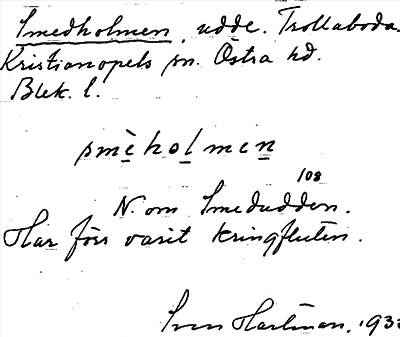 Smedholmen, udde. Trollaboda.
Kristianopels sn. Östra hd.
Blek. l.
smèholmen
108
N. om Smedudden.
Har förr varit kringfluten.
Sven Hartman. 193